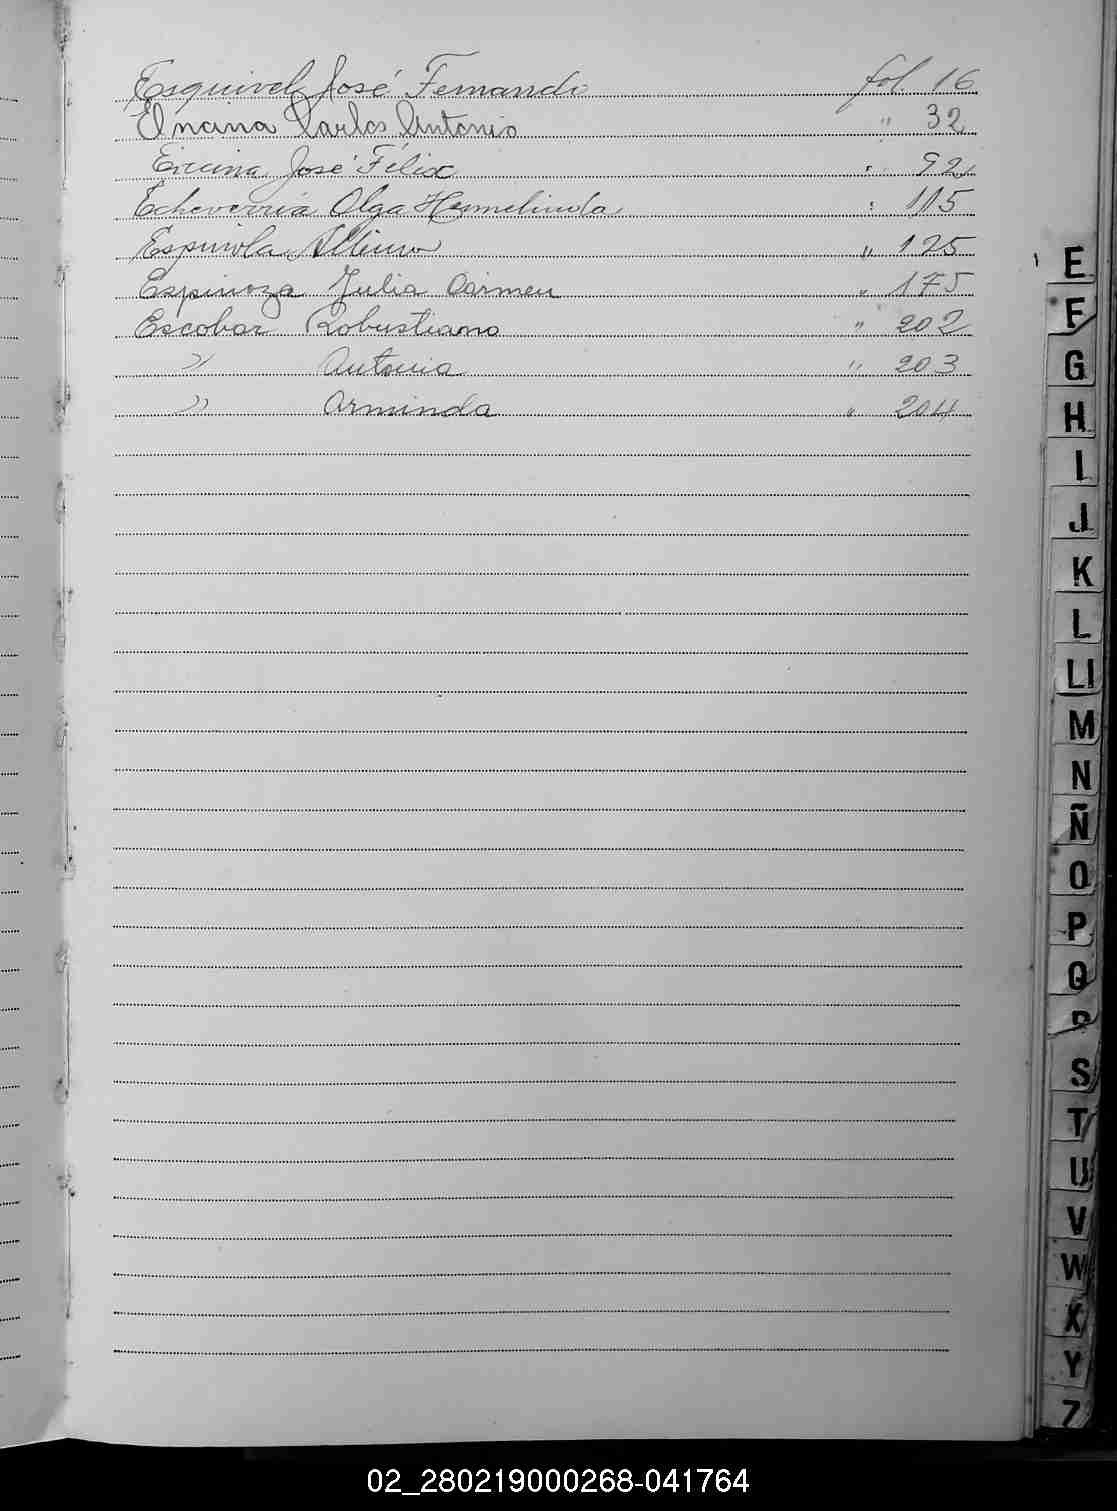 Esquivel José Fernando fol. 16
Encina Carlos Antonio " 32
Encina José Félix " 92
Echeverría Olga Hermelinda " 115
Espinola " 125
Espinoza Julia Carmen " 175
Escobar Robustiano " 202
" Antonia " 203
" Arminda " 204
E
F
G
H
I
J
K
L
Ll
M
N
Ñ
O
P
Q
R
S
T
U
V
W
X
Y
Z
02_280219000268-041764